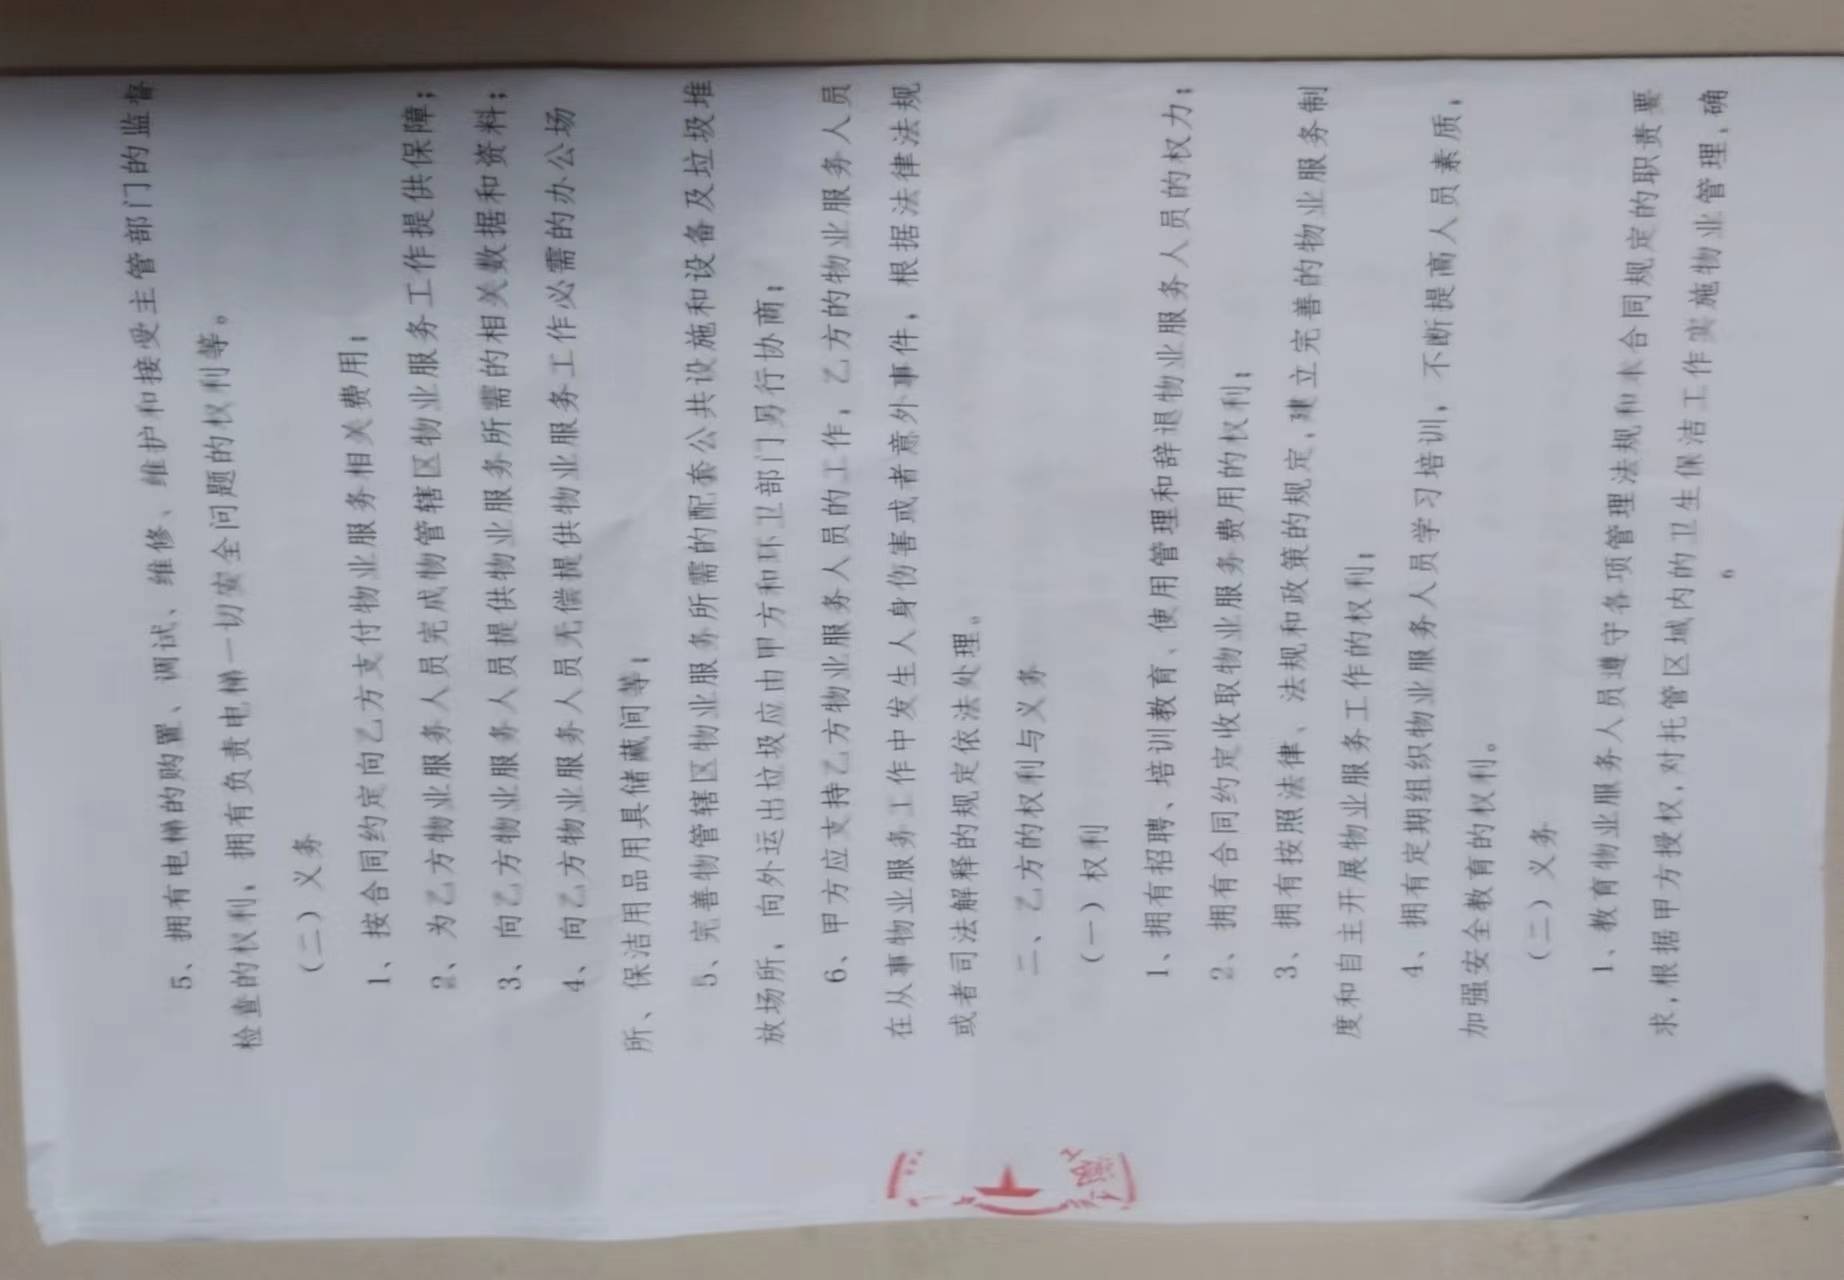 5、拥有电梯的购置、调试、维修、维护和接受主管部门的监督
检查的权利，拥有负责电梯一切安全问题的权利等。
（二）义务
1、按合同约定向乙方支付物业服务相关费用；
2、为乙方物业服务人员完成物管辖区物业服务工作提供保障；
3、向乙方物业服务人员提供物业服务所需的相关数据和资料；
4、向乙方物业服务人员无偿提供物业服务工作必需的办公场
所、保洁用品用具储藏间等；
5、完善物管辖区物业服务所需的配套公共设施和设备及垃圾堆
放场所，向外运出垃圾应由甲方和环卫部门另行协商；
6、甲方应支持乙方物业服务人员的工作，乙方的物业服务人员
在从事物业服务工作中发生人身伤害或者意外事件，根据法律法规
或者司法解释的规定依法处理。
二、乙方的权利与义务
（一）权利
1、拥有招聘、培训教育、使用管理和辞退物业服务人员的权力；
2、拥有合同约定收取物业服务费用的权利；
3、拥有按照法律、法规和政策的规定，建立完善的物业服务制
度和自主开展物业服务工作的权利；
4、拥有定期组织物业服务人员学习培训，不断提高人员素质，
加强安全教育的权利。
（二）义务
1、教育物业服务人员遵守各项管理法规和本合同规定的职责要
求，根据甲方授权，对托管区域内的卫生保洁工作实施物业管理，确
6